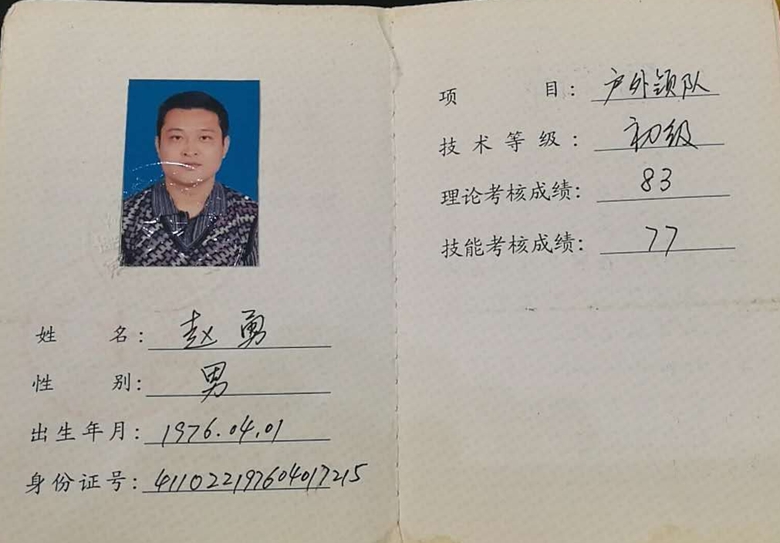 姓名：赵勇
性别：男
出生年月：1976.04.01
身份证号：411022197604017215
项目：户外领队
技术等级：初级
理论考核成绩：83
技能考核成绩：77